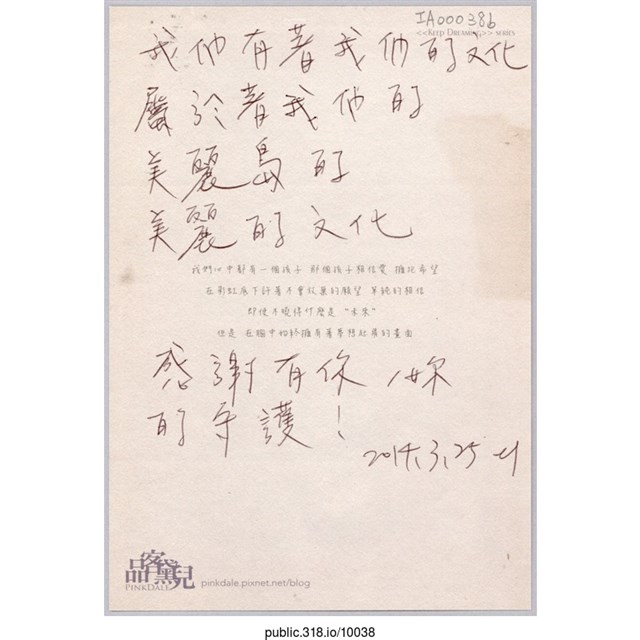 IA00038b
<<KEEP DREAMING>> SERIES
我们有著我们的文化
屬於著我们的
美麗島的
美麗的文化
我們心中都有一個孩子 那個孩子相信愛 擁抱希望
在彩虹底下許著不會放棄的願望 單純的相信
即使不曉得什麼是 "未來"
但是 在腦中始終擁有著夢想起飛的畫面
感謝有你/妳
的守護!
2014.3.25
品客黛兒
PINKDALE
pinkdale.pixnet.net/blog
public.318.io/10038